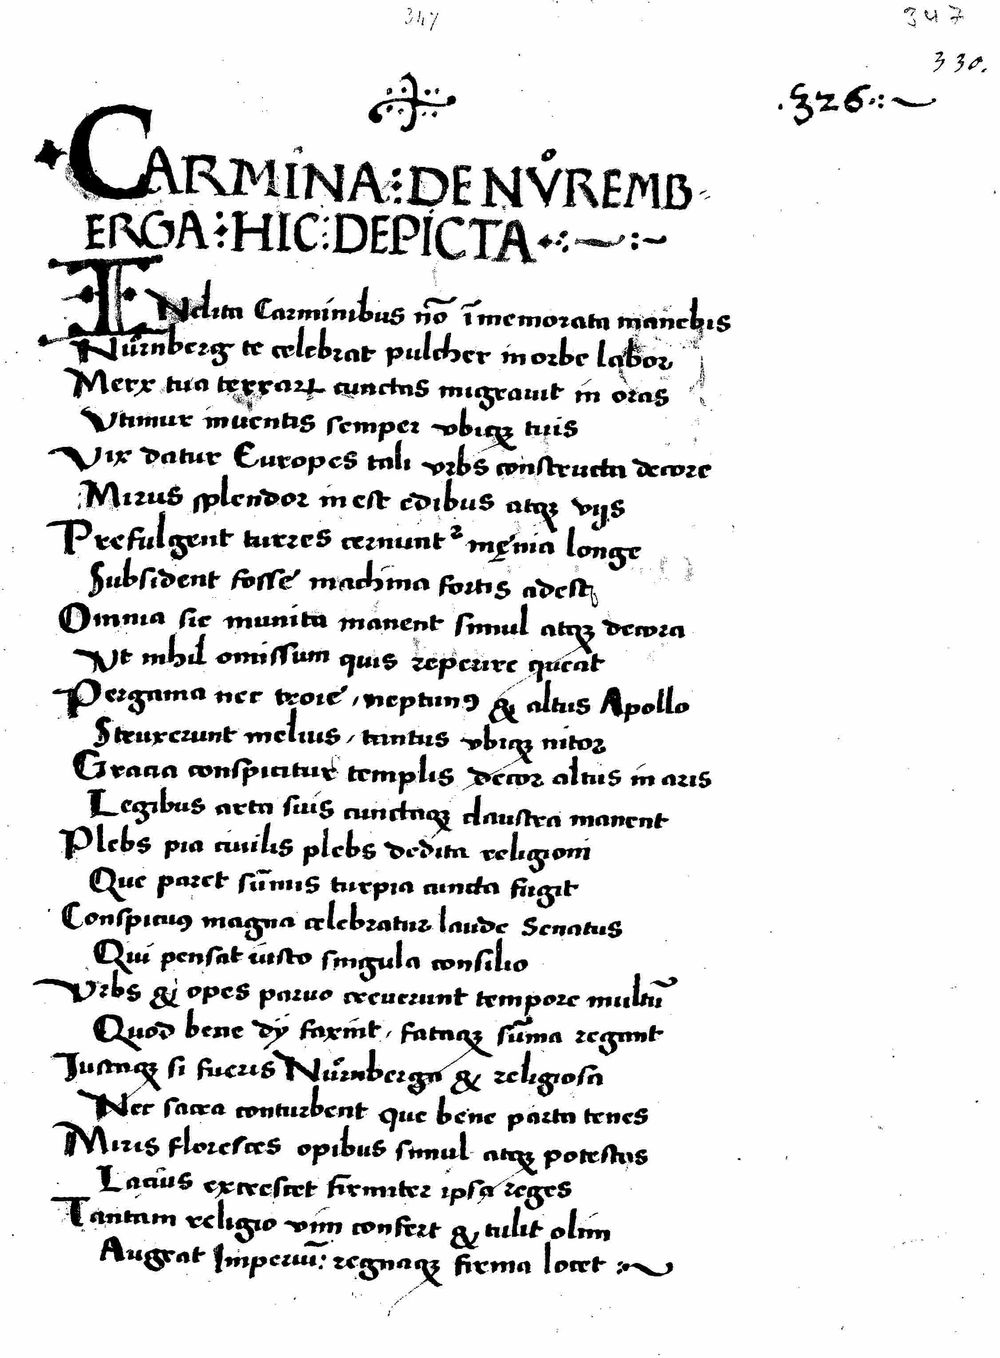 347 347
330.
.326.:~
CARMINA : DE NůREMB
ERGA : HIC : DEPICTA
INclita Carminibus nō īmemorata manebis
Nůrnberg te celebrat pulcher in orbe labor
Merx tua terraꝝ cunctas migrauit in oras
Vtimur inuentis semper vbiqꝫ tuis
Vix datur Europes tali vrbs constructa decore
Mirus splendor inest edibus atqꝫ vijs
Prefulgent turres cernunt᷑ męnia longe
Subsident fosse machina fortis adest
Omnia sic munita manent simul atqꝫ decora
Vt nihil omissum quis reperire queat
Pergama nec troie / neptunꝰ & altus Apollo
Struxerunt melius / tantus vbiqꝫ nitor
Gracia conspicitur templis decor altus in aris
Legibus arta suis cunctaqꝫ claustra manent
Plebs pia ciuilis plebs dedita religioni
Que paret sūmis turpia cuncta fugit
Conspicuꝰ magna celebratur laude Senatus
Qui pensat iusto singula consilio
Vrbs & opes paruo creuerunt tempore multū
Quod bene dij faxint / fataqꝫ sūma regant
Justaqꝫ si fueris Nůrnberga & religiosa
Nec sacra conturbent que bene parta tenes
Miris floresces opibus simul atqꝫ potestas
Lacius excrescet firmiter ipsa reges
Tantam religio vim confert & tulit olim
Augeat Imperiū: regnaqꝫ firma locet :~